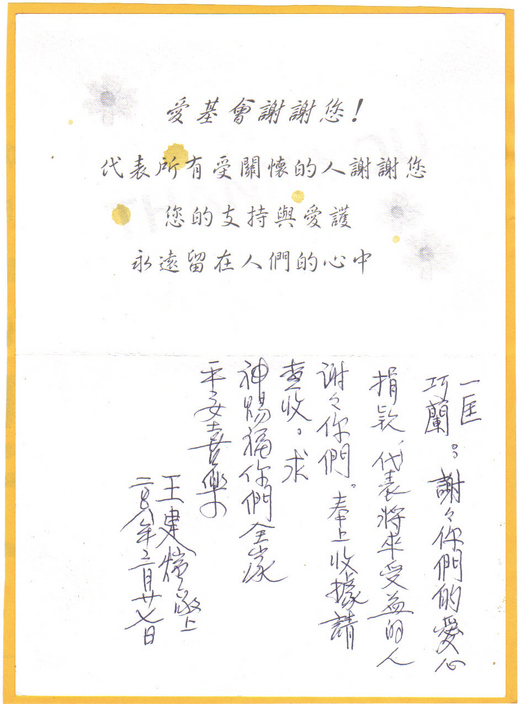 愛基會謝謝您！
代表所有受關懷的人謝謝您
您的支持與愛護
永遠留在人們的心中
一匡
巧蘭：謝々你們的愛心
捐款，代表將來受益的人
謝々你們。奉上收據請
查收。求
神賜福你們全家
平安喜樂
王建煊敬上
年月廿七日